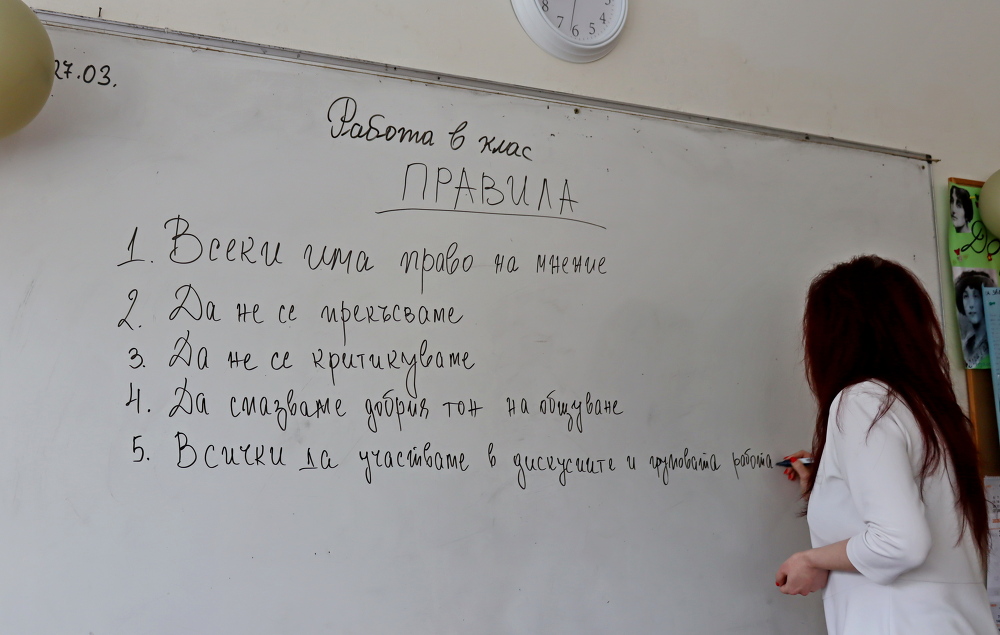 27.03.
Работа в клас
ПРАВИЛА
1. Всеки има право на мнение
2. Да не се прекъсваме
3. Да не се критикуваме
4. Да спазваме добрия тон на общуване
5. Всички да участваме в дискусиите и груповата работа
8 7 6 5 4 3